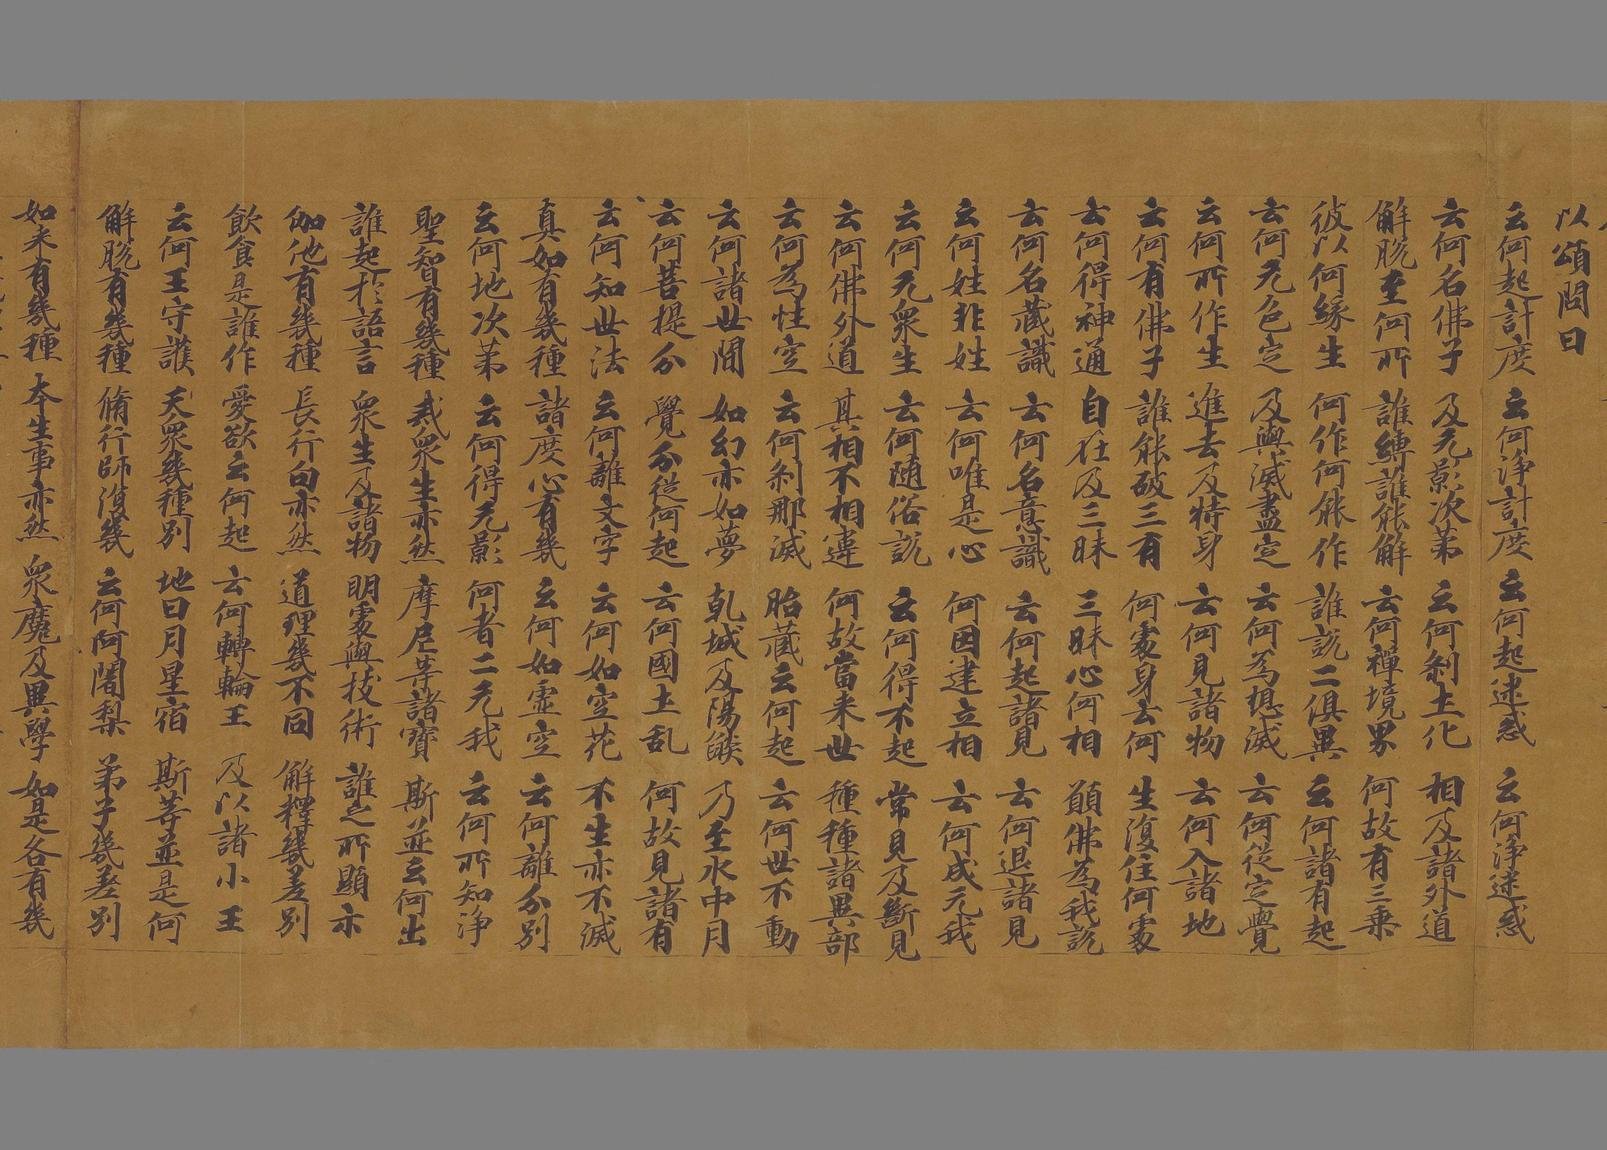 以頌問曰
云何起計度 云何淨計度 云何起迷惑 云何淨迷惑
云何名佛子 及无影次第 云何刹土化 相及諸外道
解脫至何所 誰縛誰能解 云何禪境界 何故有三乘
彼以何緣生 何作何能作 誰說二俱異 云何諸有起
云何无色定 及與滅盡定 云何為想滅 云何從定覺
云何所作生 進去及持身 云何見諸物 云何入諸地
云何有佛子 誰能破三有 何處身云何 生復住何處
云何得神通 自在及三昧 三昧心何相 願佛為我說
云何名藏識 云何名意識 云何起諸見 云何退諸見
云何姓非姓 云何唯是心 何因建立相 云何成无我
云何无衆生 云何隨俗說 云何得不起 常見及斷見
云何佛外道 其相不相違 何故當来世 種種諸異部
云何為性空 云何刹那滅 胎藏云何起 云何世不動
云何諸世間 如幻亦如夢 乹城及陽焰 乃至水中月
云何菩提分 覺分從何起 云何國土乱 何故見諸有
云何知世法 云何離文字 云何如空花 不生亦不滅
真如有幾種 諸度心有幾 云何如虛空 云何離分別
云何地次第 云何得无影 何者二无我 云何所知淨
聖智有幾種 戒衆生亦然 摩尼等諸寶 斯並云何出
誰起於語言 衆生及諸物 明處與技術 誰之所顯示
伽他有幾種 長行句亦然 道理幾不同 解釋幾差別
飲食是誰作 愛欲云何起 云何轉輪王 及以諸小王
云何王守護 天衆幾種別 地日月星宿 斯等並是何
解脫有幾種 脩行師復幾 云何阿闍梨 弟子幾差別
如来有幾種 本生事亦然 衆魔及異學 如是各有幾